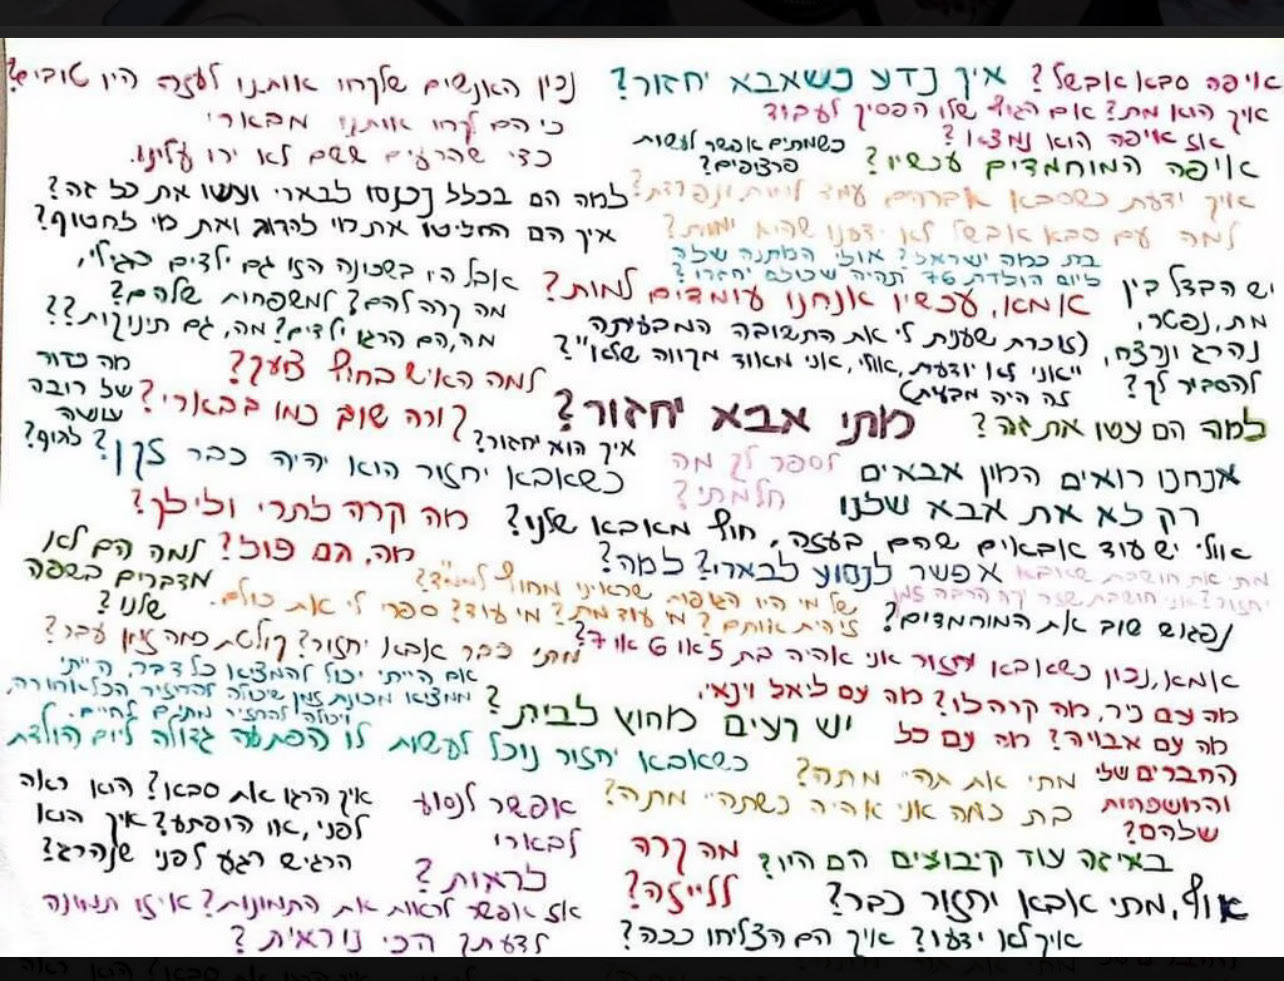 איפה סבא אבשל?
איך נדע כשאבא יחזור?
נכון האנשים שלקחו אותנו לעזה היו טובים?
כי הם לקחו אותנו מבארי
כדי שהרעים ששם לא ירו עלינו.
איך הוא מת? אם הגוף שלו הפסיק לעבוד
אז איפה הוא נמצא?
כשמתים אפשר לעשות
פרצופים?
איפה המוחמדים עכשיו?
למה הם בכלל נכנסו לבארי ועשו את כל זה?
איך הם החליטו את מי להרוג ואת מי לחטוף?
איך ידעת כשסבא אברהם עמד למות ונפרדת?
למה עם סבא אבשל לא ידענו שהוא ימות?
בת כמה ישראל? אולי המתנה שלה
ליום הולדת 76 תהיה שכולם יחזרו?
אבל היו בשכונה הזו גם ילדים כגילי,
מה קרה להם? למשפחות שלהם?
מה, הם הרגו ילדים? מה, גם תינוקות??
יש הבדל בין
מת, נפטר,
נהרג ונרצח,
להסביר לך?
אמא, עכשיו אנחנו עומדים למות?
(זוכרת שענית לי את התשובה המבעיתה
"אני לא יודעת, אולי, אני מאוד מקווה שלא"?
זה היה מבעית)
למה האיש בחוץ צועק?
מה כדור
של רובה
עושה
לגוף?
קורה שוב כמו בבארי?
מתי אבא יחזור?
למה הם עשו את זה?
איך הוא יחזור?
כשאבא יחזור הוא יהיה כבר זקן?
לספר לך מה
חלמתי?
אנחנו רואים המון אבאים
רק לא את אבא שלנו
מה קרה לתרי ולילך?
אולי יש עוד אבאים שהם בעזה, חוץ מאבא שלנו?
מה, הם פול?
למה הם לא
מדברים בשפה
שלנו?
אפשר לנסוע לבארי? למה?
מתי את חושבת שאבא
יחזור? אני חושבת שזה יקח הרבה זמן
של מי היו הגופות שראינו מחוץ לממ"ד?
זיהית אותם? מי עוד מת? מי עוד? ספרי לי את כולם.
נפגוש שוב את המוחמדים?
מתי כבר אבא יחזור? קולטת כמה זמן עבר?
אמא, נכון כשאבא יחזור אני אהיה בת 5 או 6 או 7?
אם הייתי יכול להמציא כל דבר, הייתי
ממציא מכונת זמן שיכולה להחזיר הכל אחורה,
ויכולה להחזיר מתים לחיים.
מה עם ניר, מה קרה לו? מה עם ליאל וינאי,
מה עם אביה? מה עם כל
החברים שלי
והמשפחות
שלהם?
יש רעים מחוץ לבית?
כשאבא יחזור נוכל לעשות לו הפתעה גדולה ליום הולדת
מתי את תהי מתה?
בת כמה אני אהיה כשתהיי מתה?
איך הרגו את סבא? הוא ראה
לפני, או הופתע? איך הוא
הרגיש רגע לפני שנהרג?
אפשר לנסוע
לבארי
לראות?
מה קרה
ללייזה?
באיזה עוד קיבוצים הם היו?
אוף, מתי אבא יחזור כבר?
אז אפשר לראות את התמונות? איזו תמונה
לדעתך הכי נוראית?
איך לא ידעו? איך הם הצליחו ככה?